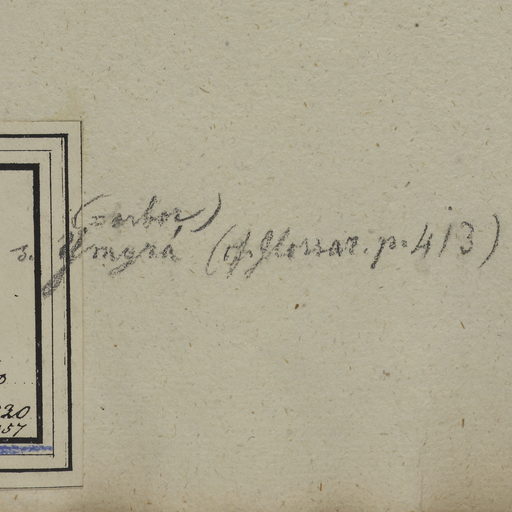 (= arbor)
s. Ymyrá (cf. Glossar. p. 413)
20
57